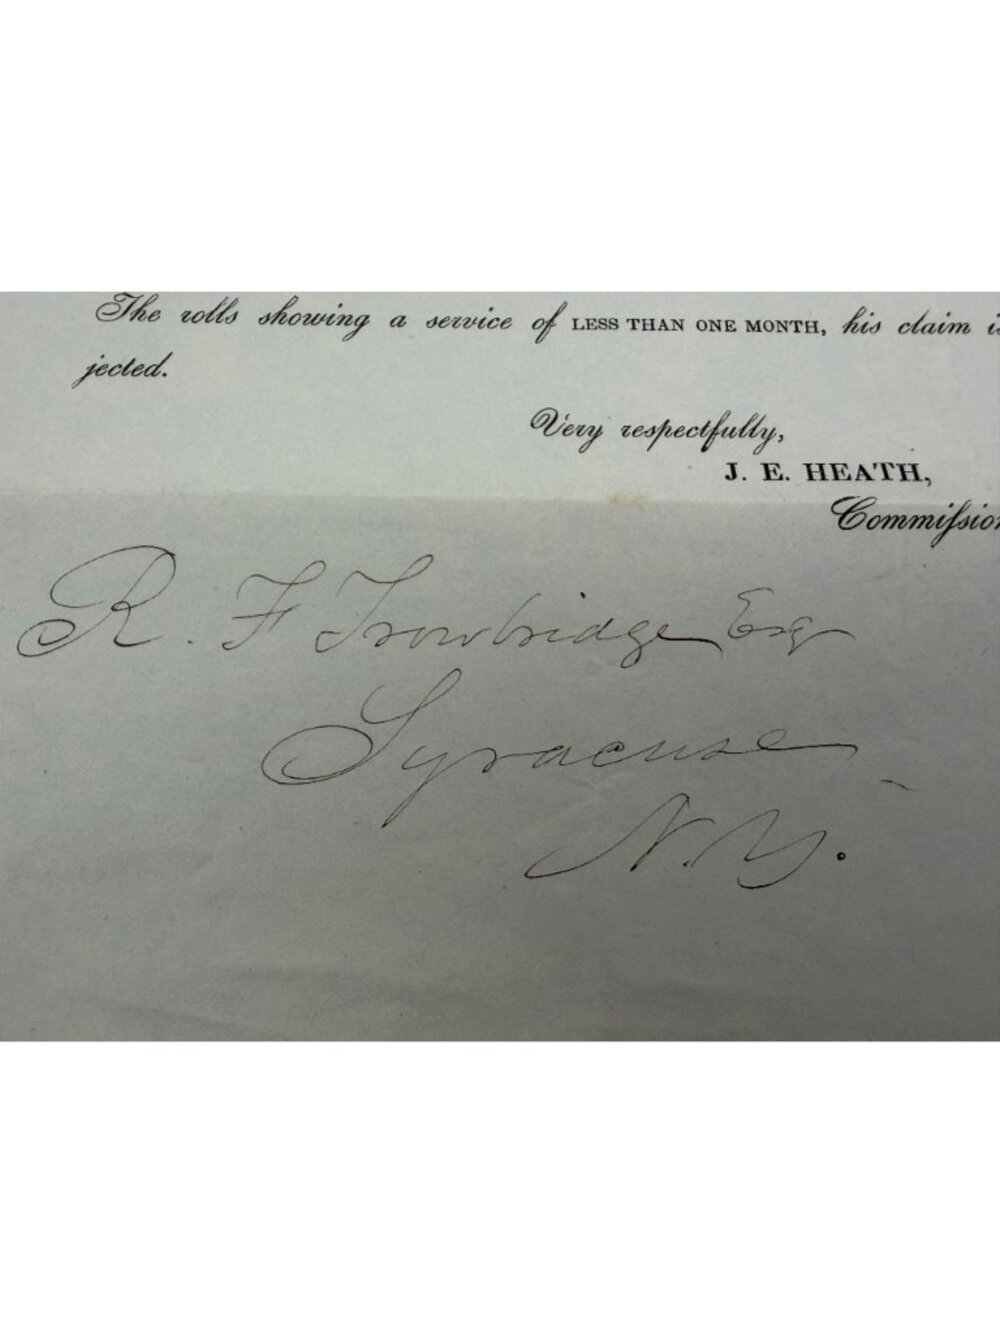 The rolls showing a service of LESS THAN ONE MONTH, his claim is
jected.
Very respectfully,
J. E. HEATH,
Commission
R. F Trowbridge Esq
Syracuse
N. Y.